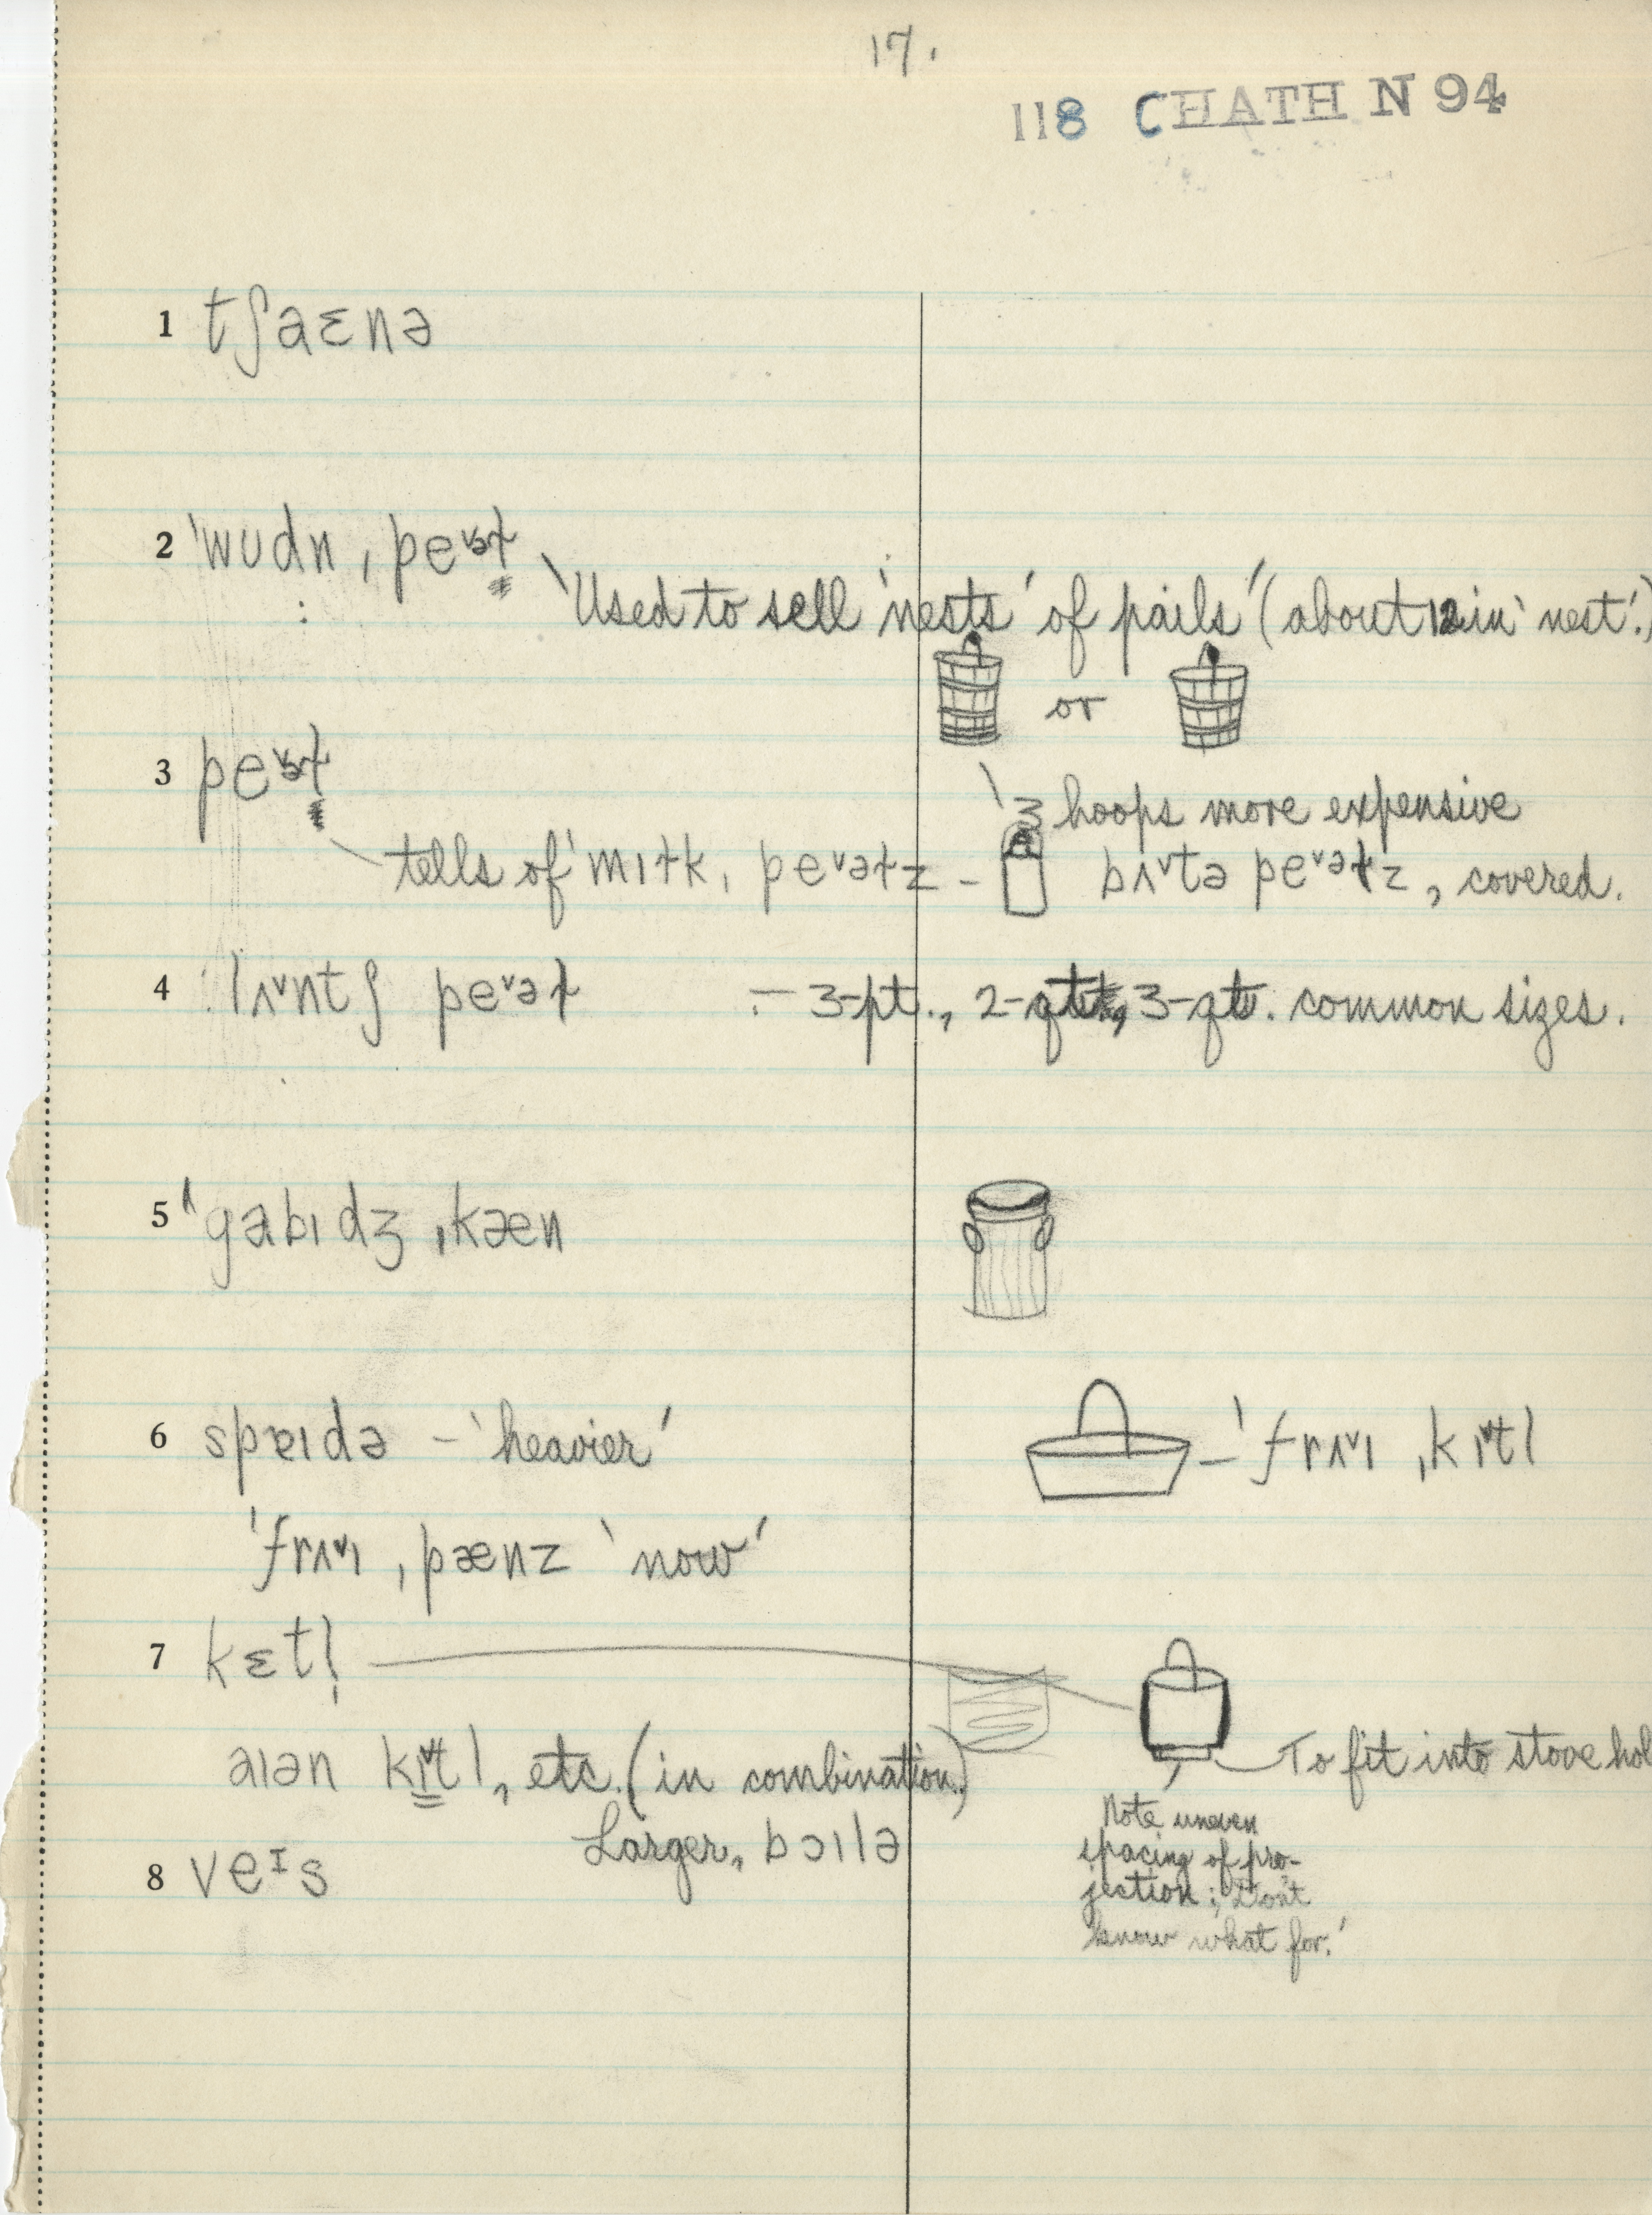 17.
118 CHATH N 94
1 tʃaɛnə
2 ˈwudn ˌpeᵛəɫ
'Used to sell 'nests' of pails' (about 12 in 'nest'.)
or
3 peᵛəɫ
'3 hoops more expensive
tells of ˈmɪɫk ˌpeᵛəɫz – bʌᵛtə peᵛəɫz, covered.
4 lʌᵛntʃ peᵛəɫ – 3-pt., 2-qt., 3-qt. common sizes.
5 ˈgabɪdʒ ˌkæn
6 spɐɪdə – 'heavier' – ˈfrʌᵛɪ ˌkɪᵛtl
ˈfrʌᵛɪ ˌpænz 'now'
7 kɛtl̩
aɪən kɪᵛtl, etc. (in combination.) To fit into stove hol
Larger, bɔɪlə
Note uneven
spacing of pro-
jection; 'Don't
know what for.'
8 veᶦs